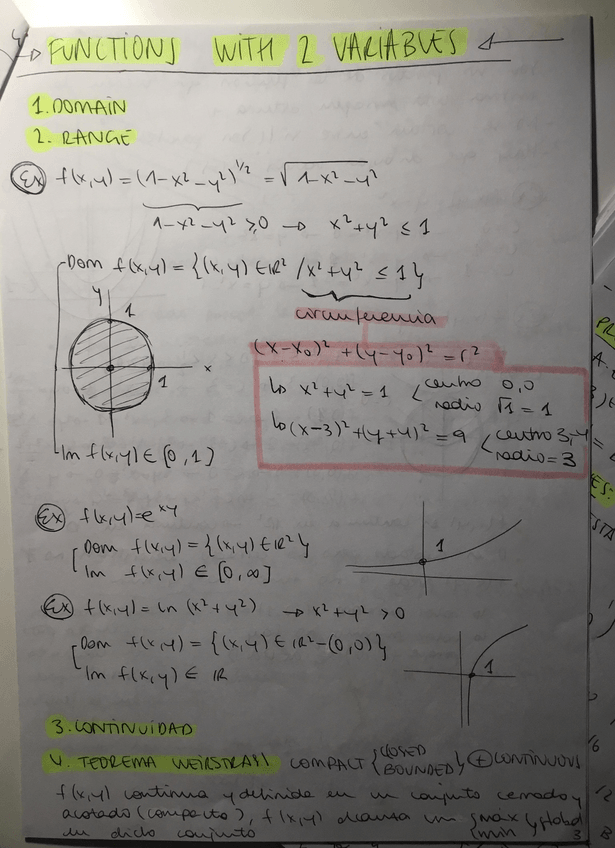 FUNCTIONS WITH 2 VARIABLES
1. DOMAIN
2. RANGE
Ex f(x,y) = (1-x²-y²)^1/2 = √1-x²-y²
1-x²-y² ≥ 0 → x²+y² ≤ 1
Dom f(x,y) = {(x,y) ∈ ℝ² / x²+y² ≤ 1}
circunferencia
y
1
1
x
(x-x₀)² + (y-y₀)² = r²
↳ x²+y² = 1 < centro 0,0
radio √1 = 1
↳ (x-3)² + (y+4)² = 9 < centro 3,-4
radio = 3
Im f(x,y) ∈ [0,1]
Ex f(x,y) = e^xy
Dom f(x,y) = {(x,y) ∈ ℝ²}
Im f(x,y) ∈ [0,∞]
1
Ex f(x,y) = ln (x²+y²) → x²+y² > 0
Dom f(x,y) = {(x,y) ∈ ℝ²-(0,0)}
Im f(x,y) ∈ ℝ
1
3. CONTINUIDAD
4. TEOREMA WEIRSTRASS COMPACT {CLOSED BOUNDED} ⊕ CONTINUOUS
f(x,y) continua y definida en un conjunto cerrado y
acotado (compacto), f(x,y) alcanza un {max min} global
en dicho conjunto
3